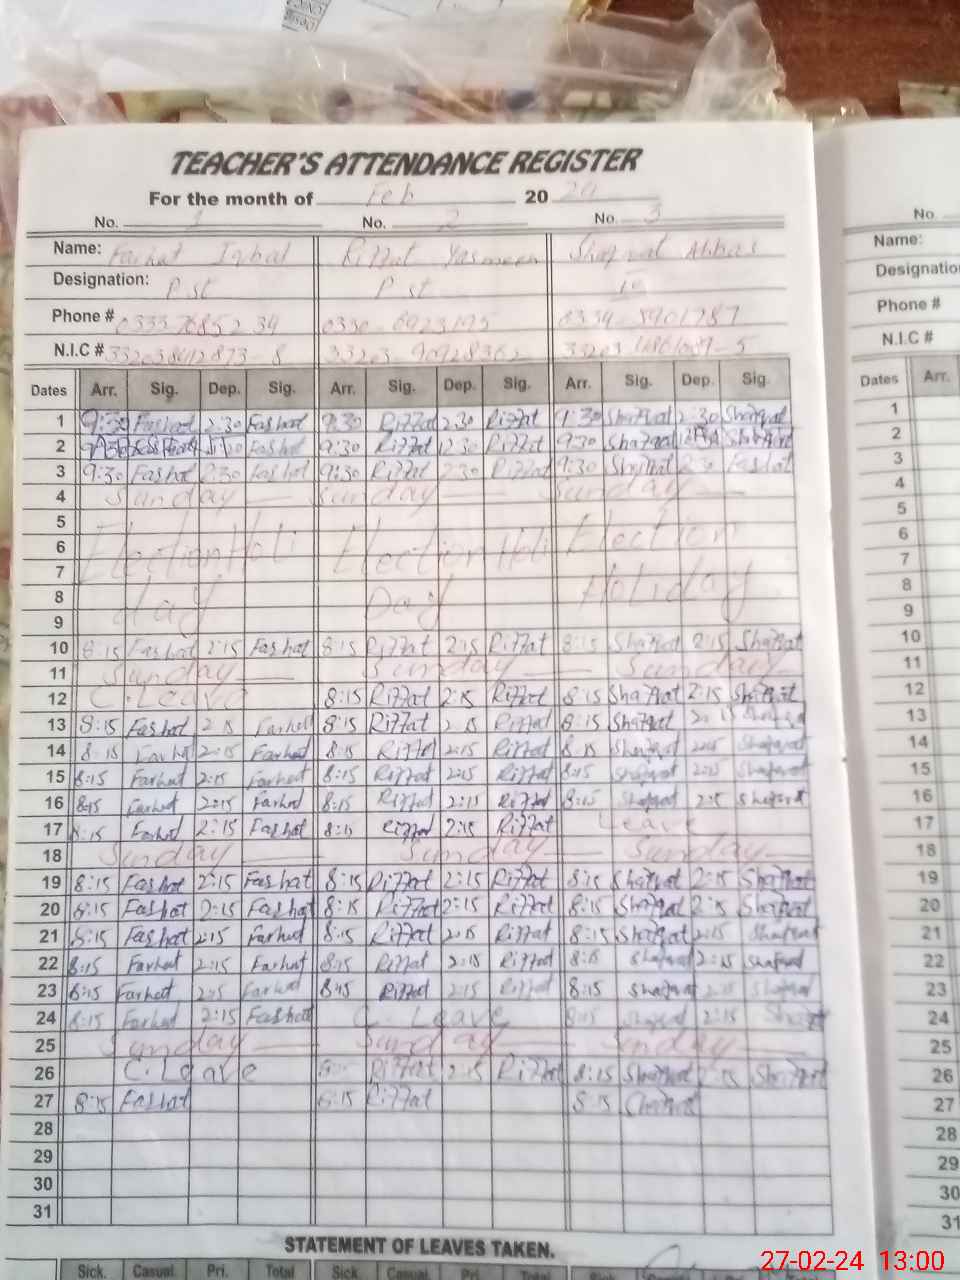 TEACHER'S ATTENDANCE REGISTER
For the month of Feb 20 24
No. 1 No. 2 No. 3 No.
Name: Farhat Iqbal Riffat Yasmeen Shafqat Abbas Name:
Designation: P st P st Designatio
Phone # Phone #
N.I.C # N.I.C #
Dates Arr. Sig. Dep. Sig. Arr. Sig. Dep. Sig. Arr. Sig. Dep. Sig. Dates Arr.
1 9:30 Farhat 2:30 Farhat 9:30 Riffat 2:30 Riffat 9:30 Shafqat 2:30 Shafqat 1
2 9:30 Riffat 12:30 Riffat 9:30 Shafqat Shafqat 2
3 9:30 Farhat 2:30 Farhat 9:30 Riffat 2:30 Riffat 9:30 Shafqat 2:30 3
4 Sunday Sunday Sunday 4
5 5
6 Election Holi Election Holi Election 6
7 7
8 day Day Holiday 8
9 9
10 8:15 Farhat 2:15 Farhat 8:15 Riffat 2:15 Riffat 8:15 Shafqat 2:15 Shafqat 10
11 Sunday Sunday Sunday 11
12 C. Leave 8:15 Riffat 2:15 Riffat 8:15 Shafqat 2:15 Shafqat 12
13 8:15 Farhat 2:15 Farhat 8:15 Riffat 2:15 Riffat 8:15 Shafqat Shafqat 13
14 8:15 Farhat 2:15 Farhat 8:15 Riffat 2:15 Riffat 8:15 Shafqat 2:15 Shafqat 14
15 8:15 Farhat 2:15 Farhat 8:15 Riffat 2:15 Riffat 8:15 Shafqat 2:15 Shafqat 15
16 8:15 Farhat 2:15 Farhat 8:15 Riffat 2:15 Riffat 8:15 Shafqat 2:15 Shafqat 16
17 8:15 Farhat 2:15 Farhat 8:15 Riffat 2:15 Riffat Leave 17
18 Sunday Sunday Sunday 18
19 8:15 Farhat 2:15 Farhat 8:15 Riffat 2:15 Riffat 8:15 Shafqat 2:15 Shafqat 19
20 8:15 Farhat 2:15 Farhat 8:15 Riffat 2:15 Riffat 8:15 Shafqat 2:15 Shafqat 20
21 8:15 Farhat 2:15 Farhat 8:15 Riffat 2:15 Riffat 8:15 Shafqat 2:15 Shafqat 21
22 8:15 Farhat 2:15 Farhat 8:15 Riffat 2:15 Riffat 8:15 Shafqat 2:15 Shafqat 22
23 8:15 Farhat 2:15 Farhat 8:15 Riffat 2:15 Riffat 8:15 Shafqat 2:15 Shafqat 23
24 8:15 Farhat 2:15 Farhat C. Leave 8:15 Shafqat 2:15 Shafqat 24
25 Sunday Sunday Sunday 25
26 C. Leave Riffat 2:15 Riffat 8:15 Shafqat 2:15 Shafqat 26
27 8:15 Farhat 8:15 Riffat 8:15 Shafqat 27
28 28
29 29
30 30
31 31
STATEMENT OF LEAVES TAKEN.
Sick. Casual. Pri. Total Sick. Casual. Pri. Total Sick.
27-02-24 13:00